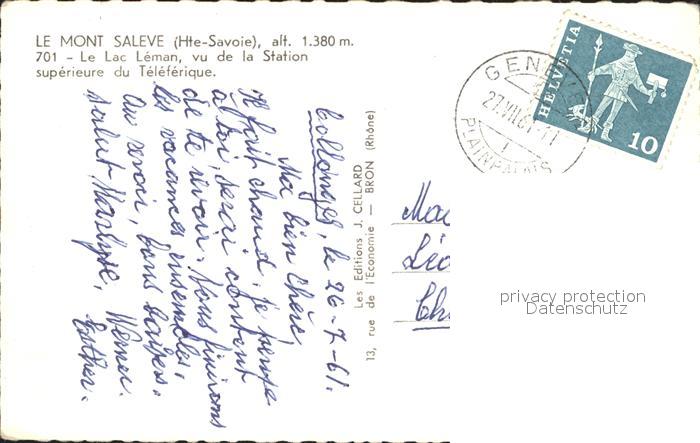 LE MONT SALEVE (Hte-Savoie), alt. 1.380 m.
701 - Le Lac Léman, vu de la Station
supérieure du Téléférique.
Collonges, le 26-7-61.
Ma bien chère
Il fait chaud, je pense
à toi, serai content
de te revoir. Nous finirons
les vacances ensembles.
Au revoir, bons baisers.
Werner.
Salut Marlyse, Esther.
Les Editions J. CELLARD
13, rue de l'Economie — BRON (Rhône)
GENÈVE
27.VII.61-11
1
PLAINPALAIS
HELVETIA
10
privacy protection
Datenschutz